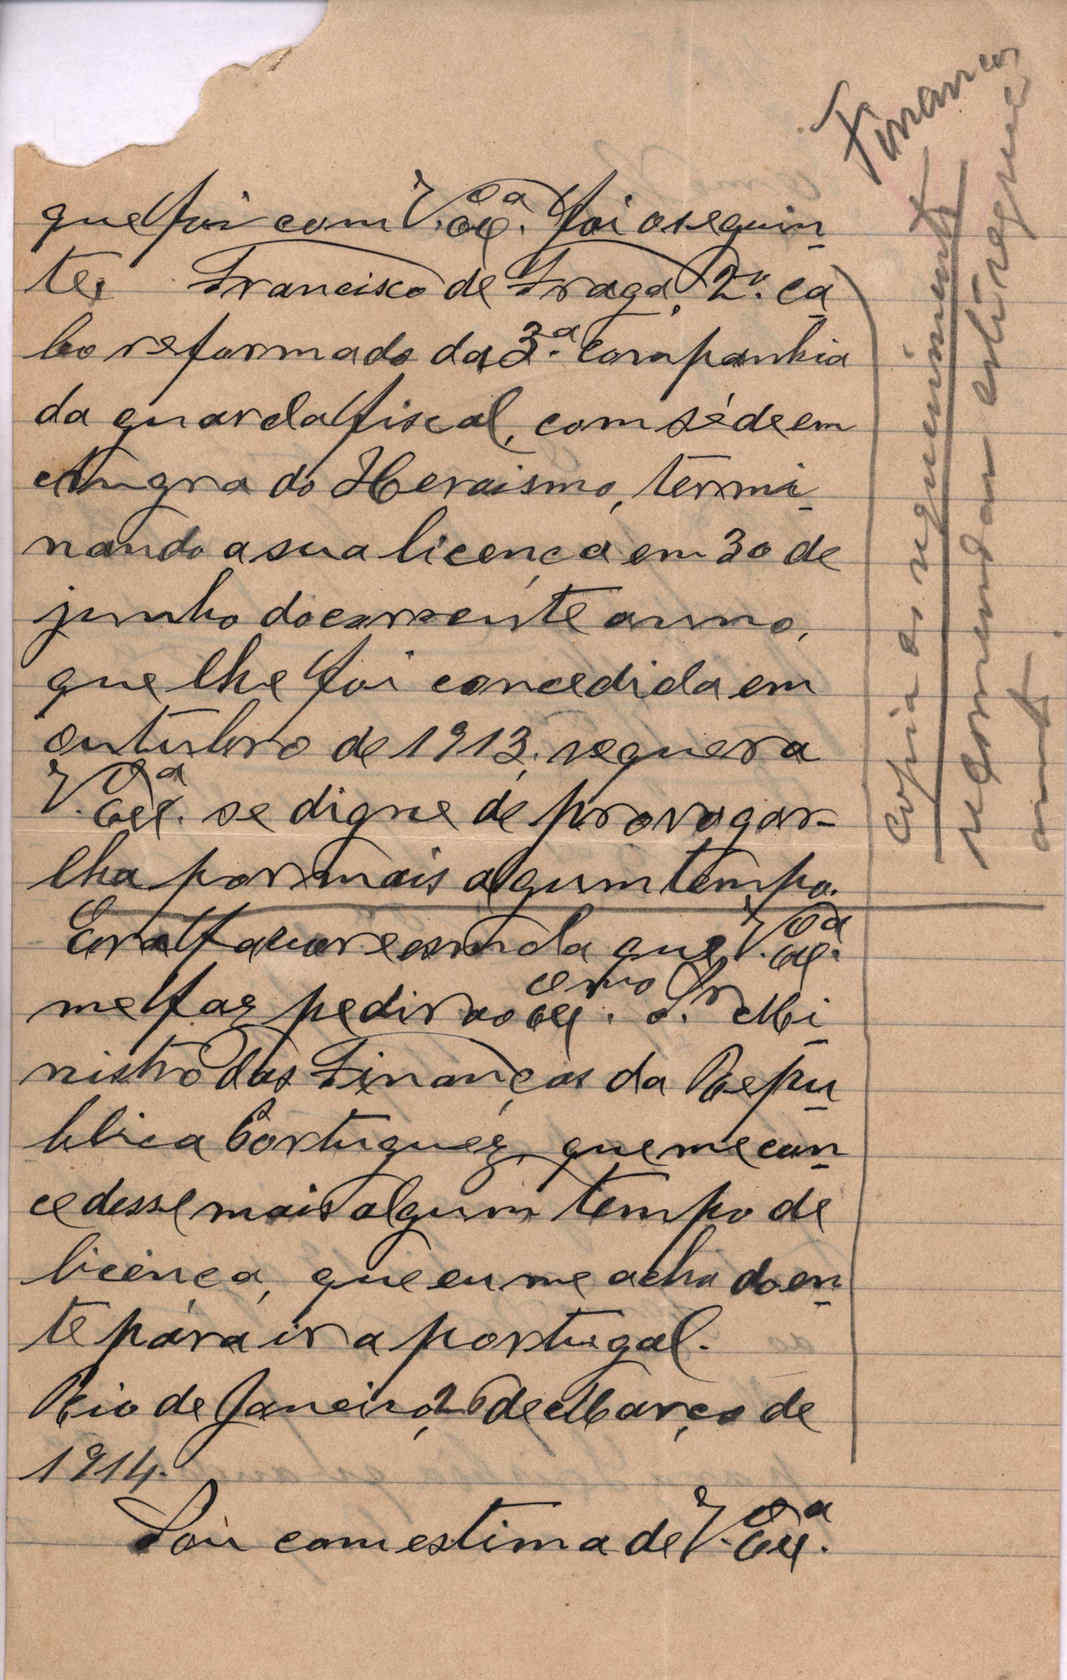 que foi com V. Exª. foi o seguin
te. Francisco de Fraga, 2º. ca
bo reformado da 3ª. Companhia
da guarda fiscal, com séde em
Angra do Heroismo, termi
nando a sua licença em 30 de
junho do corrente anno,
que lhe foi concedida em
outubro de 1913, requer a
V. Exª. se digne de prorogar-
lha por mais algum tempo.
Era favor esmola que V. Exª.
me faz pedir ao Exmo. Sr. Mi
nistro das Finanças da Repu
blica Portuguez, que me con
cedesse mais algum tempo de
licença, que eu me acho doen
te pára ir a portugal.
Rio de Janeiro, 26 de Março de
1914.
Sou com estima de V. Exª.
Finanças
Copia do requerimento
recomendar